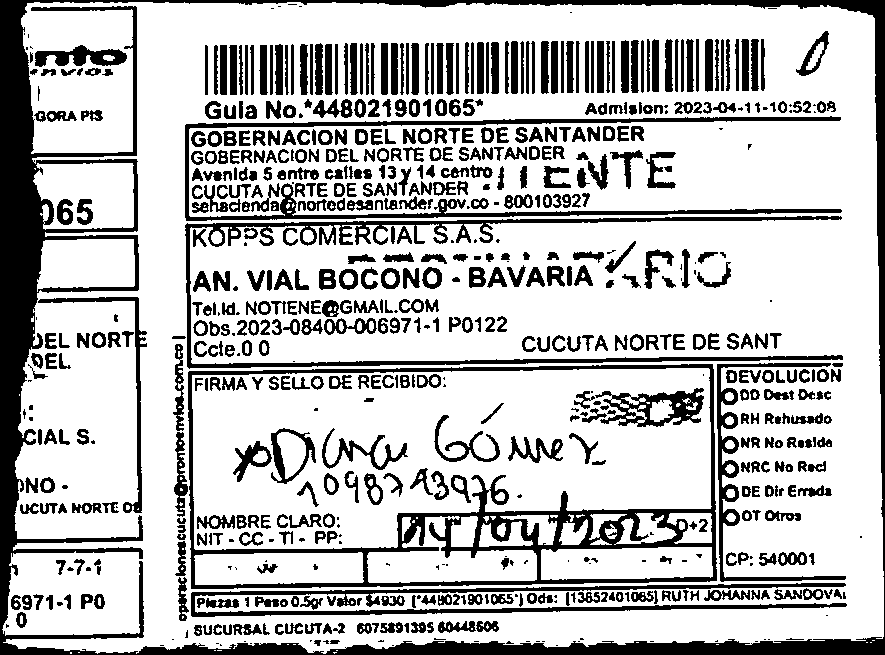 nto
envios
GORA PIS
065
DEL NORTE
DEL
CIAL S.
ONO -
UCUTA NORTE DE
7-7-1
6971-1 P0
0
operacionescucuta@prontoenvios.com.co
Guia No.*448021901065*
Admision: 2023-04-11-10:52:08
GOBERNACION DEL NORTE DE SANTANDER
GOBERNACION DEL NORTE DE SANTANDER
Avenida 5 entre calles 13 y 14 centro
CUCUTA NORTE DE SANTANDER -
sehacienda@nortedesantander.gov.co - 800103927
KOPPS COMERCIAL S.A.S.
AN. VIAL BOCONO - BAVARIA
Tel.Id. NOTIENE@GMAIL.COM
Obs.2023-08400-006971-1 P0122
Ccte.0 0
CUCUTA NORTE DE SANT
FIRMA Y SELLO DE RECIBIDO:
Diana Gómez
1098743976.
NOMBRE CLARO:
NIT - CC - TI - PP:
14/04/2023
D+2
DEVOLUCION
DD Dest Desc
RH Rehusado
NR No Reside
NRC No Recl
DE Dir Errada
OT Otros
CP: 540001
Piezas 1 Peso 0.5gr Valor $4930 [*448021901065*] Ods: [13652401065] RUTH JOHANNA SANDOVAL
SUCURSAL CUCUTA-2 6075891395 60448506